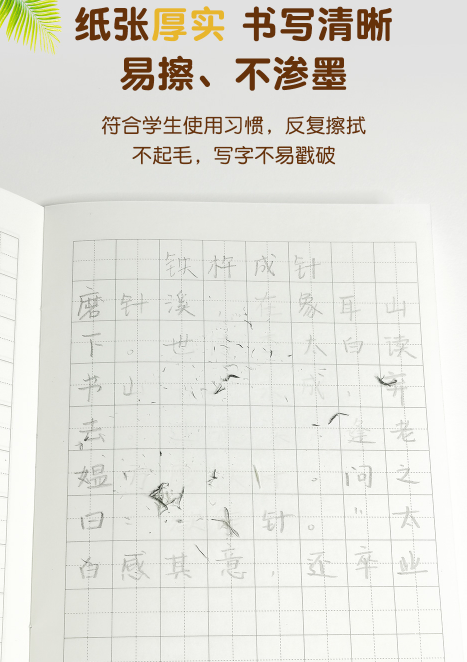 纸张厚实 书写清晰
易擦、不渗墨
符合学生使用习惯，反复擦拭
不起毛，写字不易戳破
铁杵成针
磨针溪 在象耳山
下。世 太白读
书山 成，弃
去 逢老
媪 。问之
曰： 针。"太
白感其意，还卒业